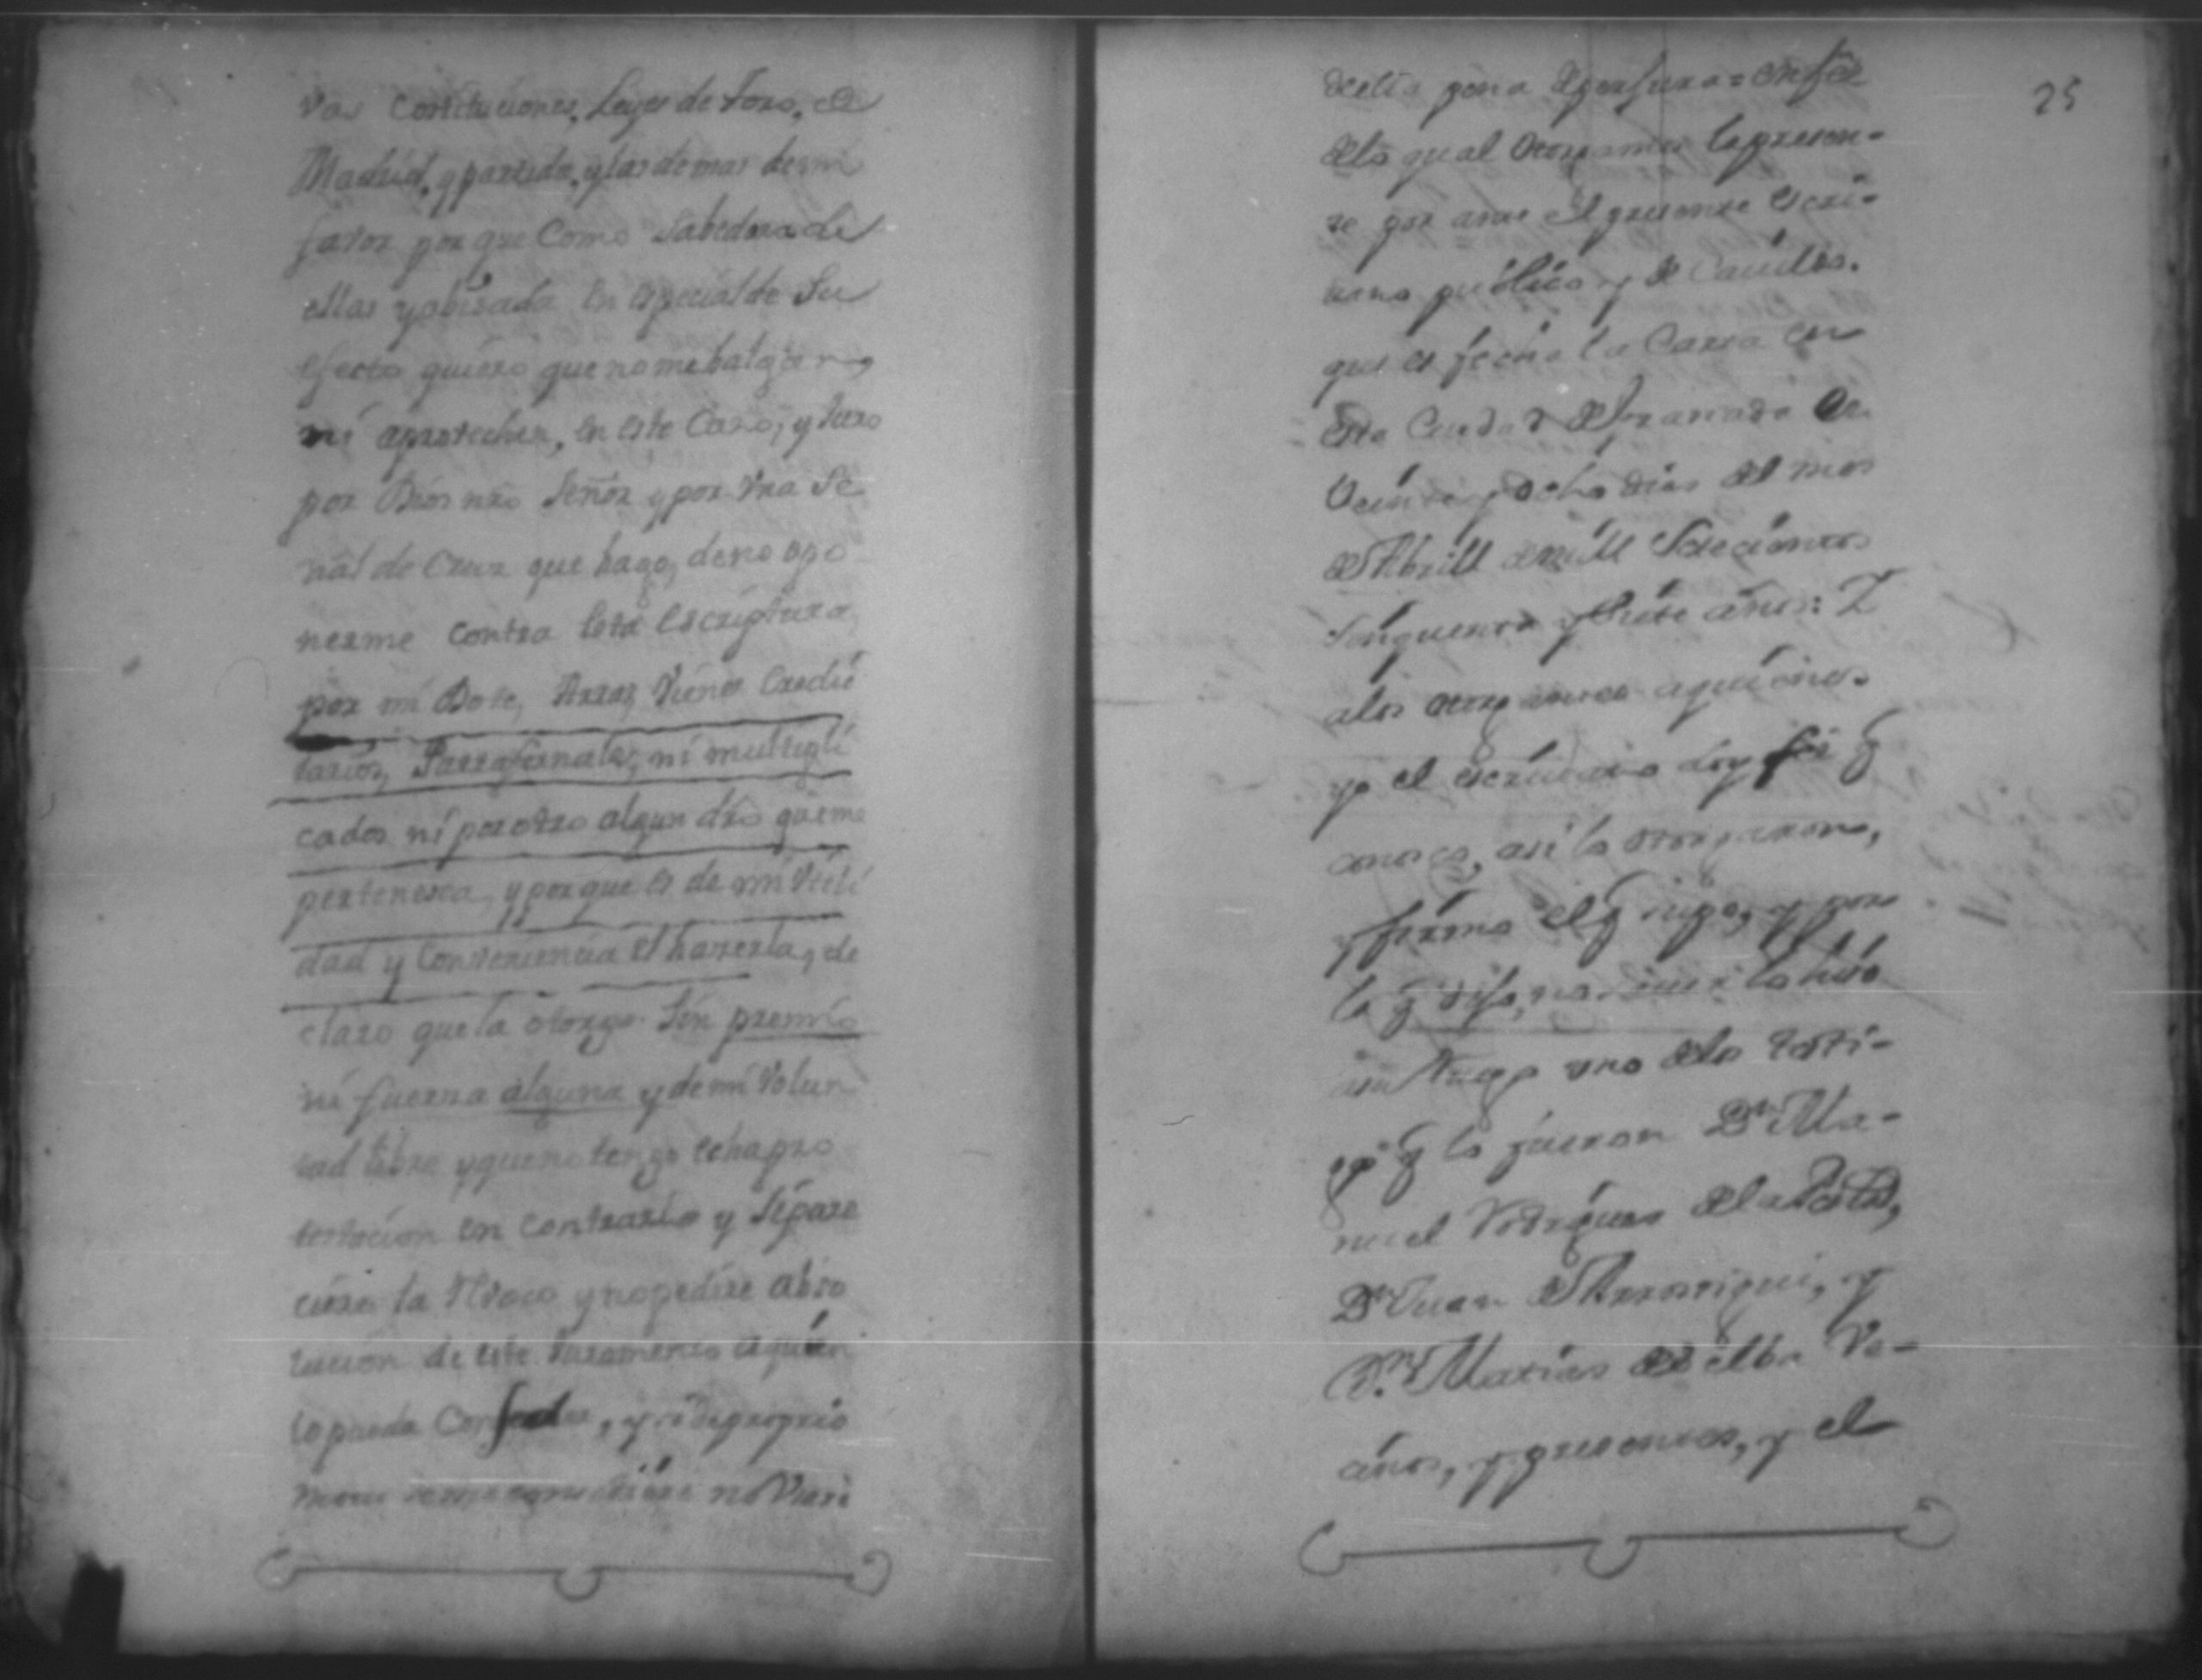 vas Constituciones, Leyes de Toro, de
Madrid, y partida, y las demas de mi
favor por que Como Sabedora de
ellas y abisada en especial de Su
efecto quiero que no me balgan,
ni aprovechen, en este Caso, y Juro
por Dios nro Señor y por Vna Se
ñal de Cruz que hago, de no opo
nerme contra esta Escriptura,
por mi Dote, Arras, Vienes Eredi
tarios, Parrafernales, ni multipli
cados, ni por otro algun dro que me
pertenesca, y por que es de mi Vtili
dad y Conveniencia el hazerla, de
claro que la otorgo Sin premio
ni fuerza alguna y de mi Volun
tad libre y que no tengo echa pro
testacion en contrario y Si pare
ciere la Revoco y no pedire abso
lucion de este Juramento a quien
lo pueda Conseder, y si de proprio
motu no Vsare
della pena de perjura = en fee
de lo qual otorgamos la presen-
te por ante el presente escri-
vano publico y de Cavildo.
que es fecha la Carta en
esta Ciudad de Granada en
Veinte y ocho dias del mes
de Abrill de mill Setecientos
Sinquenta y Siete años: Y
a los otorgantes a quienes.
yo el escrivano doy fee q̃
conosco, asi lo otorgaron,
y firmo el q̃ supo, y por
la q̃ dijo, no saver lo hizo
a su ruego uno de los testi-
gos q̃ lo fueron Dn Ma-
nuel Rodriguez de la
Dn Juan de Arrostigui, y
Dn Matias de Elba Ve-
sinos, y presentes, y el
25